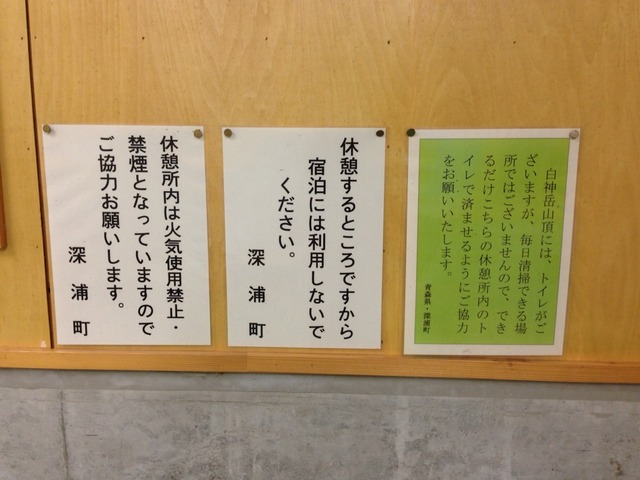 白神岳山頂には、トイレがご
ざいますが、毎日清掃できる場
所ではございませんので、でき
るだけこちらの休憩所内のト
イレで済ませるようにご協力
をお願いいたします。
青森県・深浦町
休憩するところですから
宿泊には利用しないで
ください。
深浦町
休憩所内は火気使用禁止・
禁煙となっていますので
ご協力お願いします。
深浦町